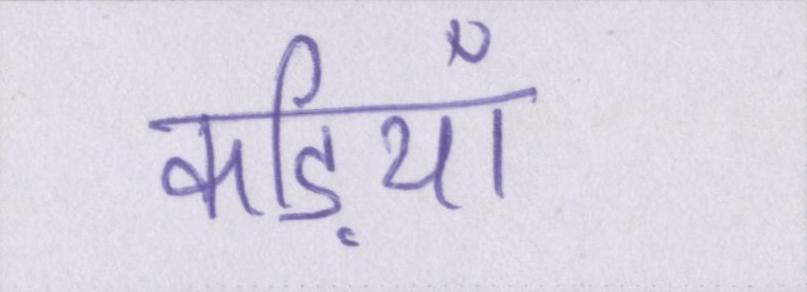 कड़ियाँ